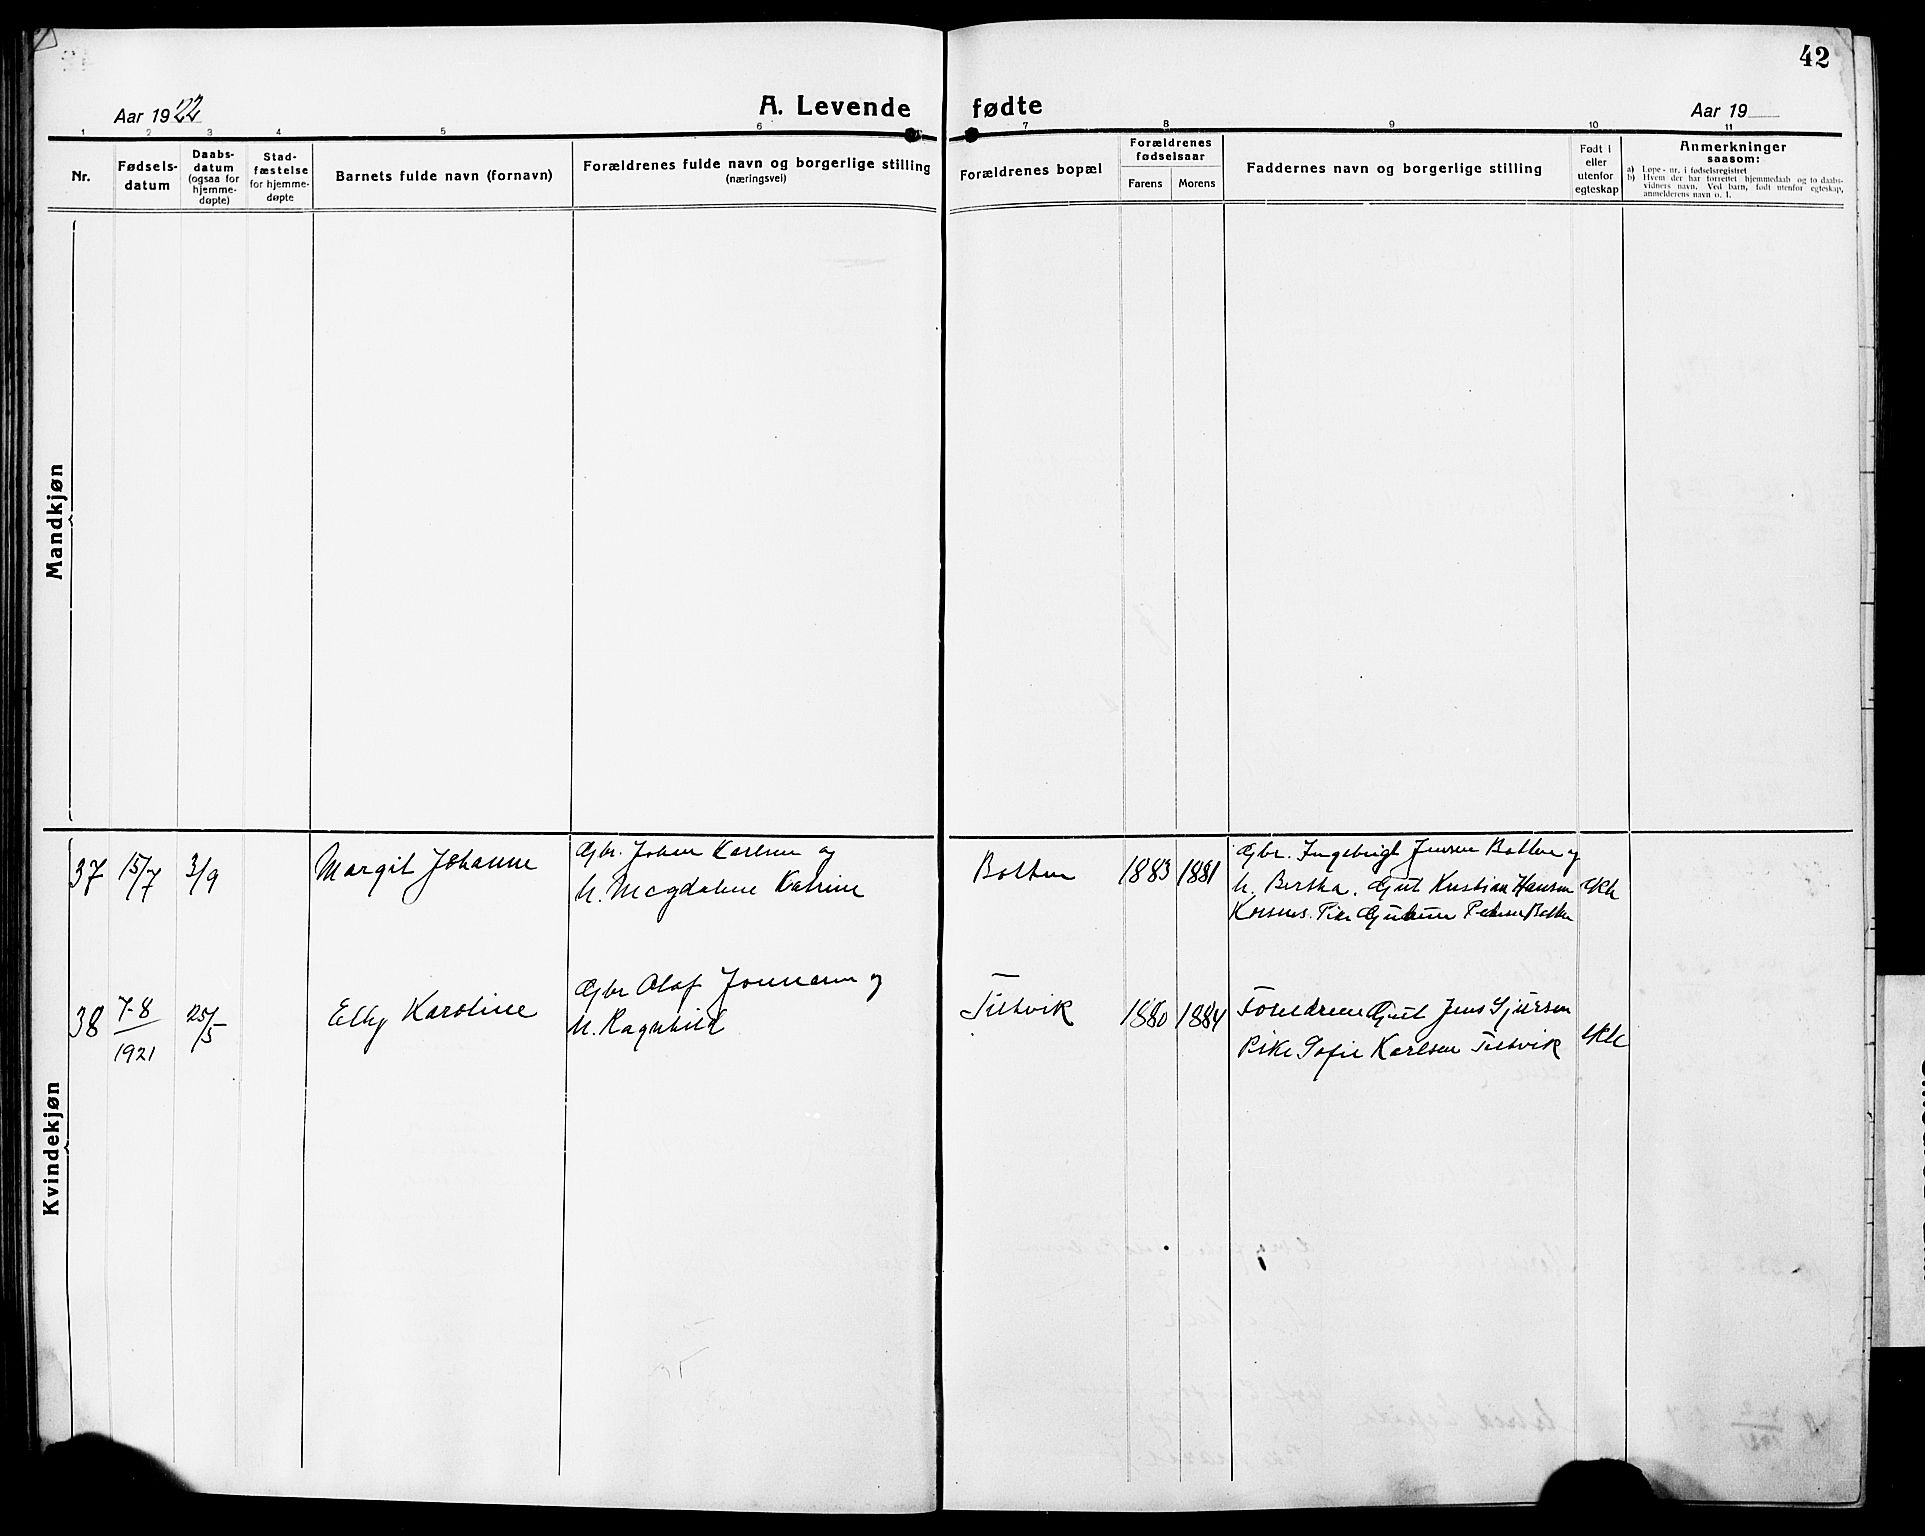 42
Aar 1922
A. Levende fødte
Aar 19
1 2 3 4 5 6 7 8 9 10 11
Nr.
Fødsels-
datum
Daabs-
datum
(ogsaa for
hjemme-
døpte)
Stad-
fæstelse
for hjemme-
døpte
Barnets fulde navn (fornavn)
Forældrenes fulde navn og borgerlige stilling
(næringsvei)
Forældrenes bopæl
Forældrenes
fødselsaar
Farens Morens
Faddernes navn og borgerlige stilling
Født i
eller
utenfor
egteskap
Anmerkninger
saasom:
a) Løpe-nr. i fødselsregistret
b) Hvem der har forrettet hjemmedaab og to daabs-
vidners navn. Ved barn, født utenfor egteskap,
anmelderens navn o. l.
Mandkjøn
Kvindekjøn
37 15/7 3/9 Margit Johanne
Gbr. Johan Karlsen og
h. Magdalene Katrine
Botten 1883 1881
Gbr. Ingebrigt Jensen Botten og
h. Bertha. Gut Kristian Hansen
Korsnes. Pike Petersen Botten
ekte
38 7-8/1921 25/5 Elly Karoline
Gbr Olaf og
h. Ragnhild
1880 1884
Foreldrene Gut Jens
Pike Sofie Karlsen
ekte